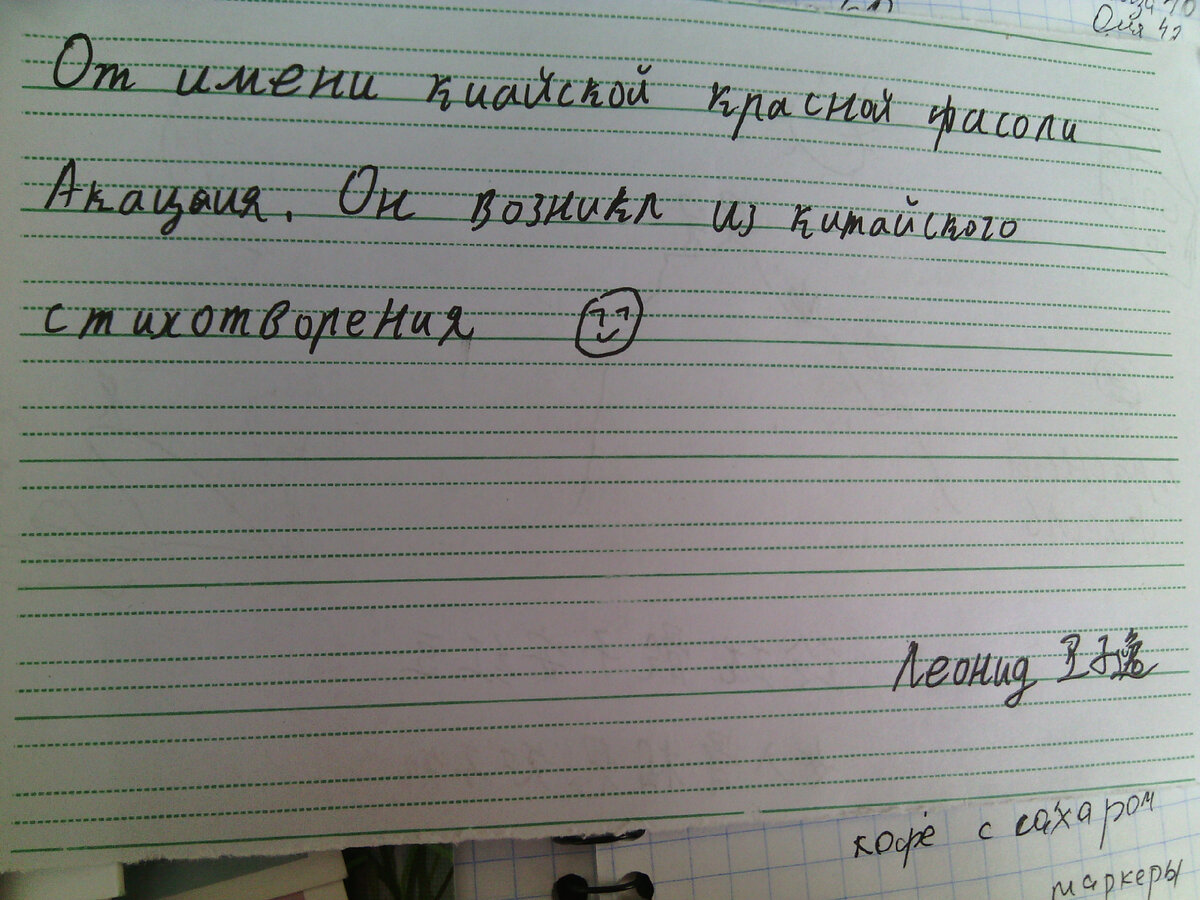 Оля 42
От имени киайской красной фасоли
Акация. Он возникл из китайского
стихотворения
Леонид 王子逸
кофе с сахаром
маркеры